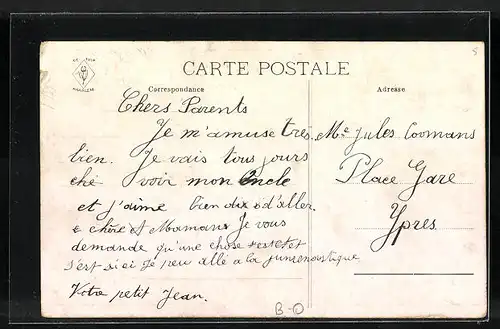 CARTE POSTALE
Correspondance
Adresse
Chers Parents
Je m'amuse tres
bien. Je vais tous jours
ché voir mon Oncle
et j'aime bien d'aller.
chère Mamans Je vous
demande qu'une chose
s'est si ci Je peu allé a la
Votre petit Jean.
Mr Jules Coomans
Place Gare
Ypres
B-O